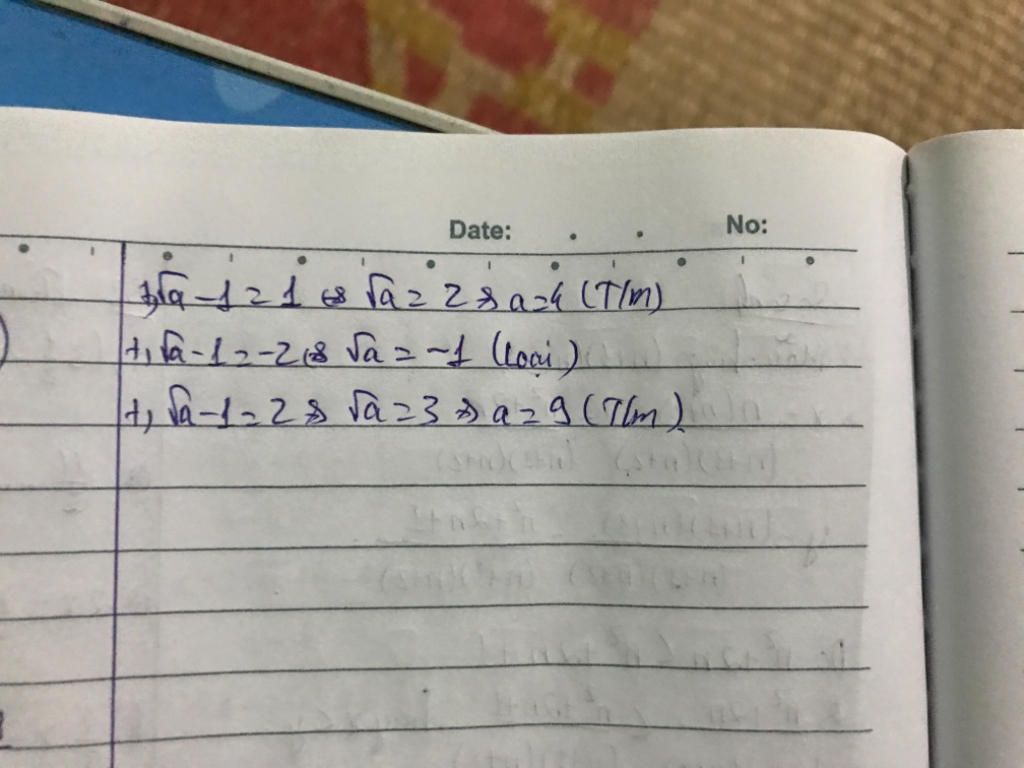 Date: . . No:
+, √a - 1 = 1 ⇔ √a = 2 ⇔ a = 4 (T/m)
+, √a - 1 = -2 ⇔ √a = -1 (Loại)
+, √a - 1 = 2 ⇔ √a = 3 ⇔ a = 9 (T/m)